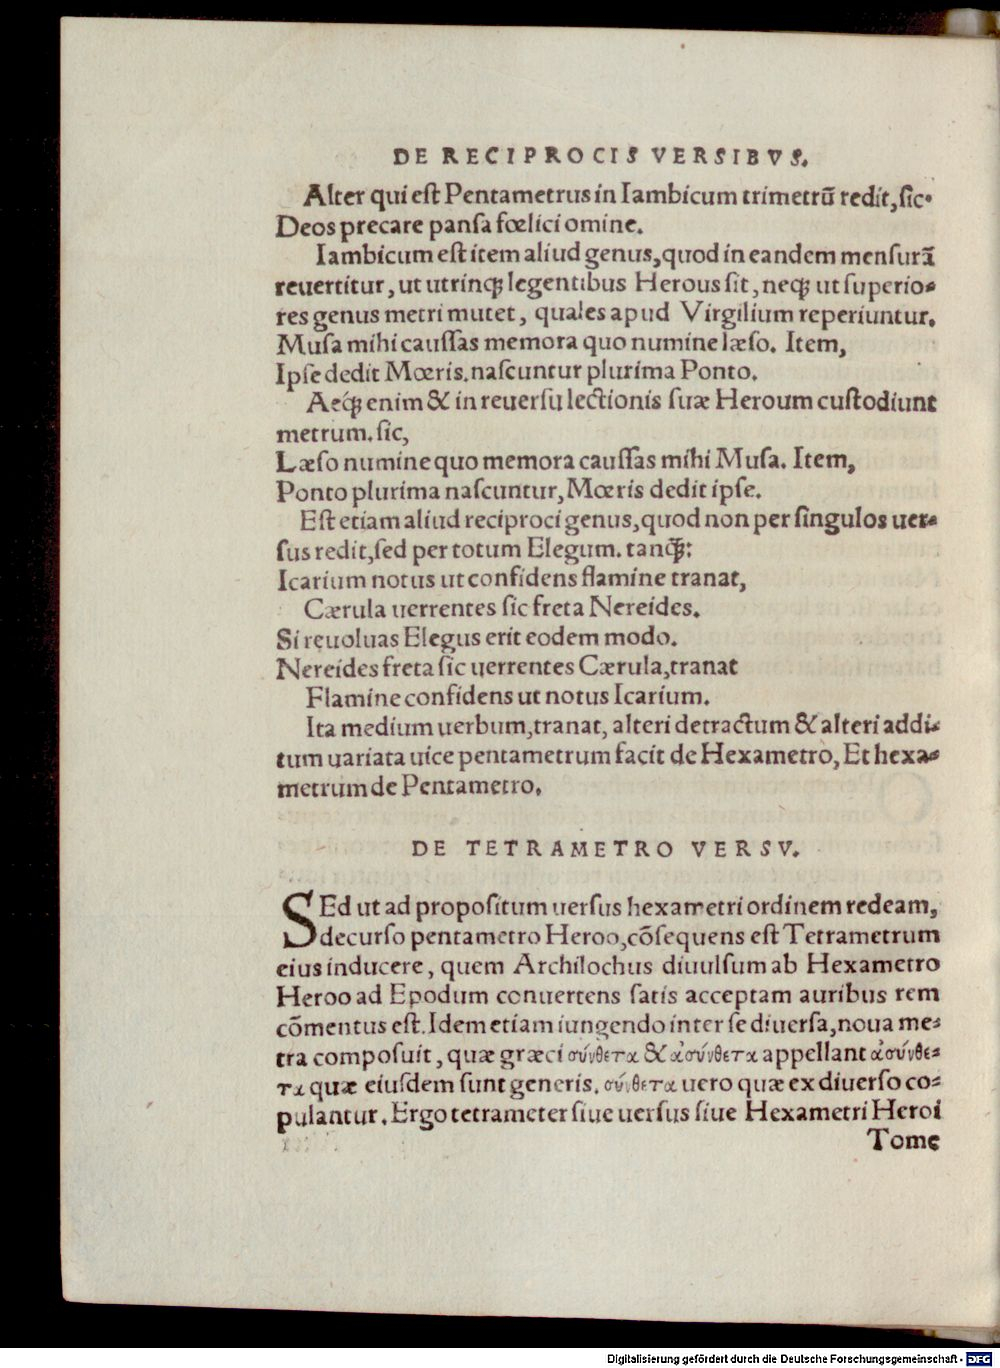 DE RECIPROCIS VERSIBVS.
Alter qui est Pentametrus in Iambicum trimetrū redit, sic.
Deos precare pansa fœlici omine.
Iambicum est item aliud genus, quod in eandem mensurā
reuertitur, ut utrinq; legentibus Herous sit, neq; ut superio-
res genus metri mutet, quales apud Virgilium reperiuntur.
Musa mihi caussas memora quo numine læso. Item,
Ipse dedit Mœris. nascuntur plurima Ponto.
Aeq; enim & in reuersu lectionis suæ Heroum custodiunt
metrum. sic,
Læso numine quo memora caussas mihi Musa. Item,
Ponto plurima nascuntur, Mœris dedit ipse.
Est etiam aliud reciproci genus, quod non per singulos uer-
sus redit, sed per totum Elegum. tanq̄;:
Icarium notus ut confidens flamine tranat,
Cærula uerrentes sic freta Nereides.
Si reuoluas Elegus erit eodem modo.
Nereides freta sic uerrentes Cærula, tranat
Flamine confidens ut notus Icarium.
Ita medium uerbum, tranat, alteri detractum & alteri addi-
tum uariata uice pentametrum facit de Hexametro, Et hexa-
metrum de Pentametro.
DE TETRAMETRO VERSV.
SEd ut ad propositum uersus hexametri ordinem redeam,
decurso pentametro Heroo, cōsequens est Tetrametrum
eius inducere, quem Archilochus diuulsum ab Hexametro
Heroo ad Epodum conuertens satis acceptam auribus rem
cōmentus est. Idem etiam iungendo inter se diuersa, noua me-
tra composuit, quæ græci σύνθετα & ἀσύνθετα appellant ἀσύνθε-
τα quæ eiusdem sunt generis. σύνθετα uero quæ ex diuerso co-
pulantur. Ergo tetrameter siue uersus siue Hexametri Heroi
Tome
Digitalisierung gefördert durch die Deutsche Forschungsgemeinschaft - DFG